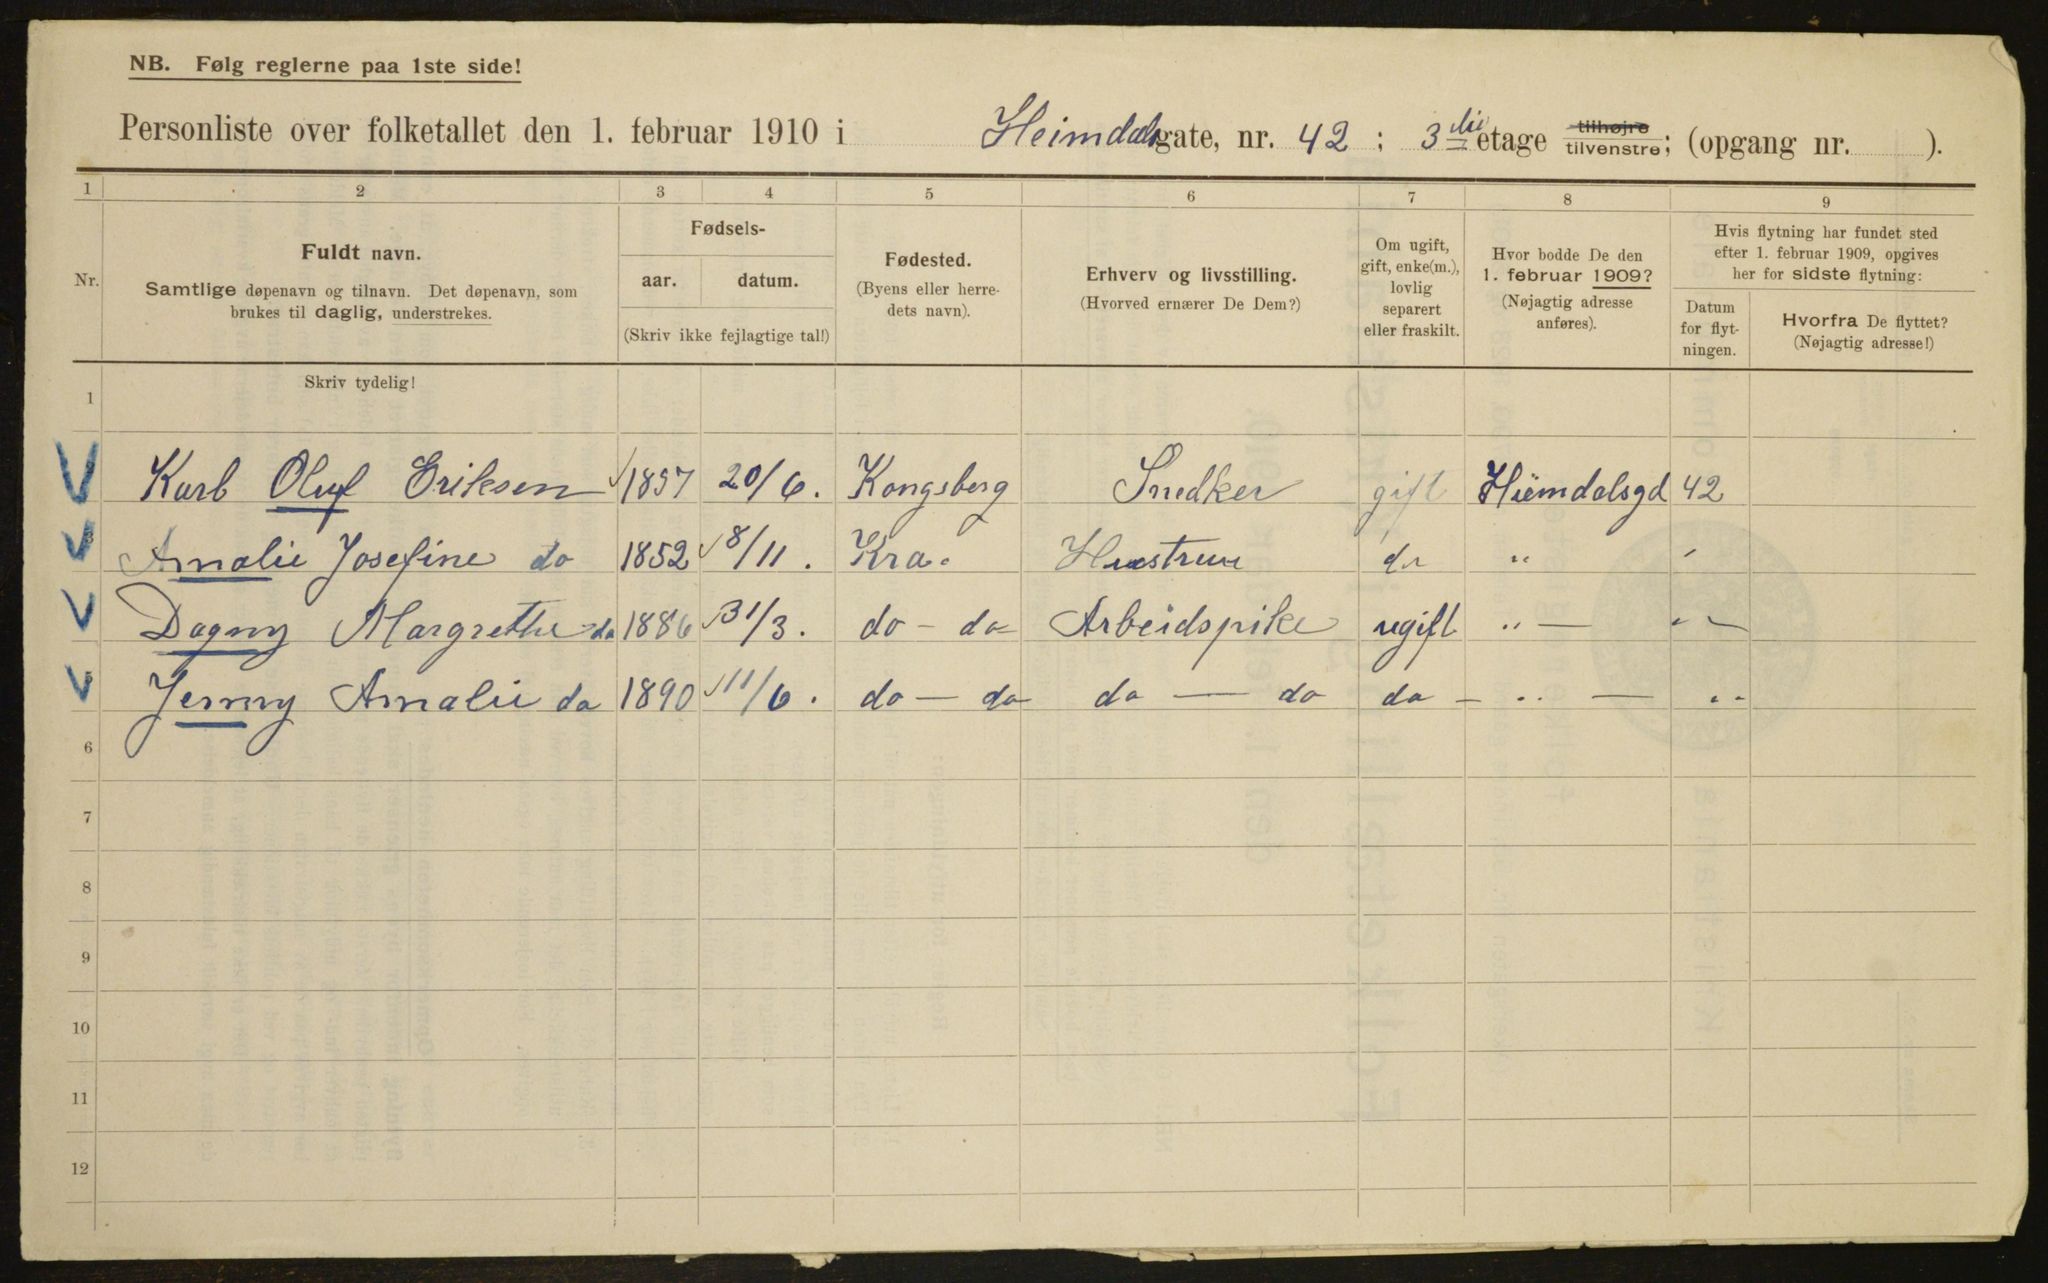 NB. Følg reglerne paa 1ste side!
Personliste over folketallet den 1. februar 1910 i Heimdalsgate, nr. 42 ; 3die etage tilhøjre tilvenstre; (opgang nr. ).
1 2 3 4 5 6 7 8 9
Nr.
Fuldt navn.
Samtlige døpenavn og tilnavn. Det døpenavn, som
brukes til daglig, understrekes.
Fødsels-
aar. datum.
(Skriv ikke fejlagtige tal!)
Fødested.
(Byens eller herre-
dets navn).
Erhverv og livsstilling.
(Hvorved ernærer De Dem?)
Om ugift,
gift, enke(m.),
lovlig
separert
eller fraskilt.
Hvor bodde De den
1. februar 1909?
(Nøjagtig adresse
anføres).
Hvis flytning har fundet sted
efter 1. februar 1909, opgives
her for sidste flytning:
Datum
for flyt-
ningen.
Hvorfra De flyttet?
(Nøjagtig adresse!)
Skriv tydelig!
1
Karl Oluf Eriksen 1857 20/6. Kongsberg Snedker gift Hiemdalsgd 42
Amalie Josefine do 1852 8/11. Kra. Hustru do " "
Dagny Margrethe do 1886 31/3. do - do Arbeidspike ugift " — "
Jenny Amalie do 1890 11/6. do — do do — do do - " — "
6
7
8
9
10
11
12